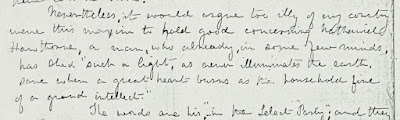 Nevertheless, it would argue too illy of my country
were this maxim to hold good concerning Nathaniel
Hawthorne, a man, who already, in some few minds,
has shed "such a light, as never illuminates the earth,
save when a great heart burns as the household fire
of a grand intellect."
The words are his, "in the Select Party"; and they